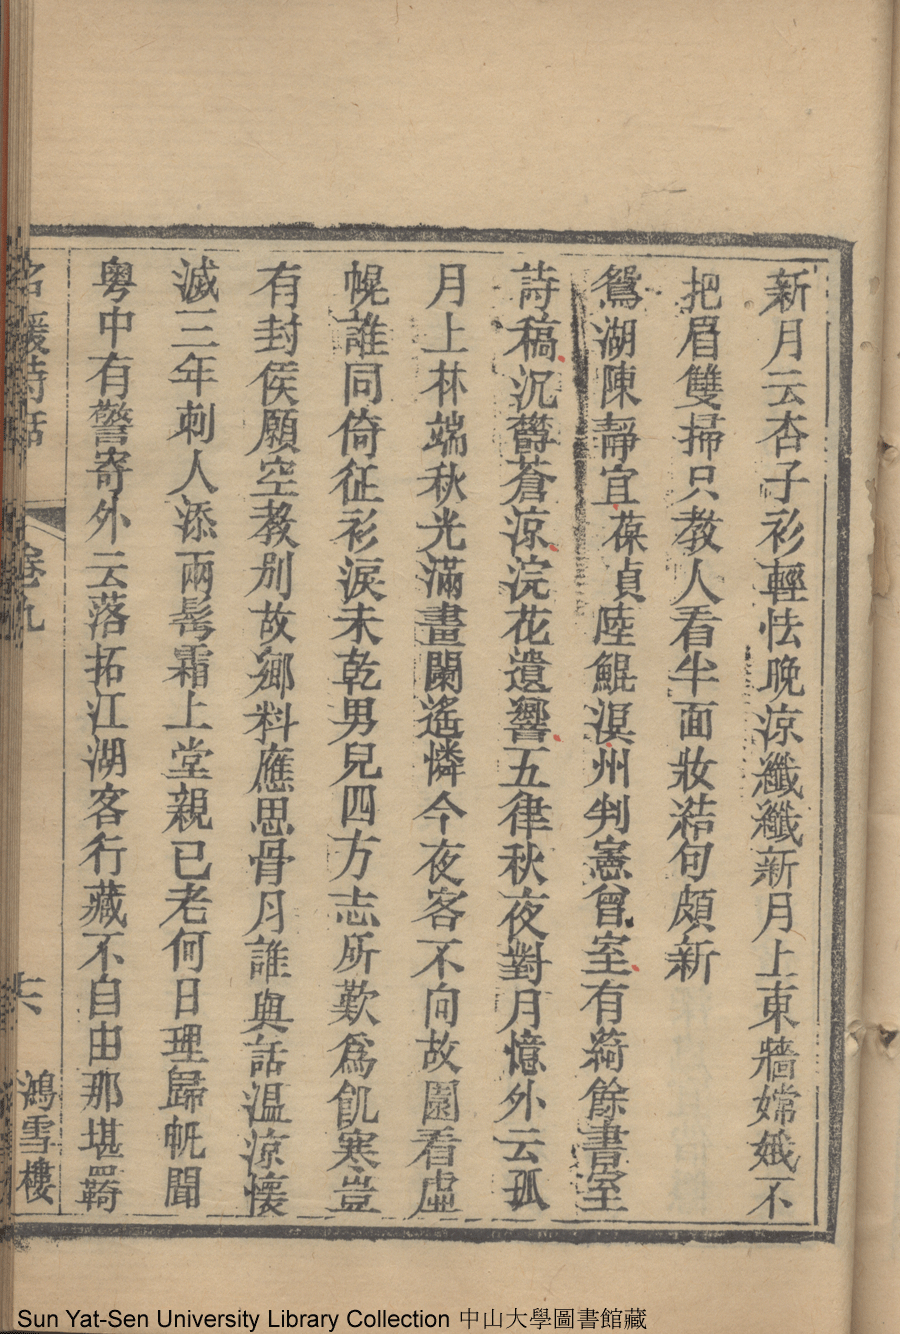 新月云杏子衫輕怯晚涼纖纖新月上東牆嫦娥不
把眉雙掃只教人看半面妝結句頗新
鴛湖陳靜宜葆貞陸鯤溟州判憲曾室有綺餘書室
詩稿沉鬱蒼涼浣花遺響五律秋夜對月憶外云孤
月上林端秋光滿畫闌遙憐今夜客不向故園看虛
幌誰同倚征衫淚未乾男兒四方志所歎為飢寒豈
有封侯願空教別故鄉料應思骨月誰與話溫涼懷
滅三年刺人添兩鬂霜上堂親已老何日理歸帆聞
粵中有警寄外云落拓江湖客行藏不自由那堪羈
名媛詩話 卷九 十六 鴻雪樓
Sun Yat-Sen University Library Collection 中山大學圖書館藏